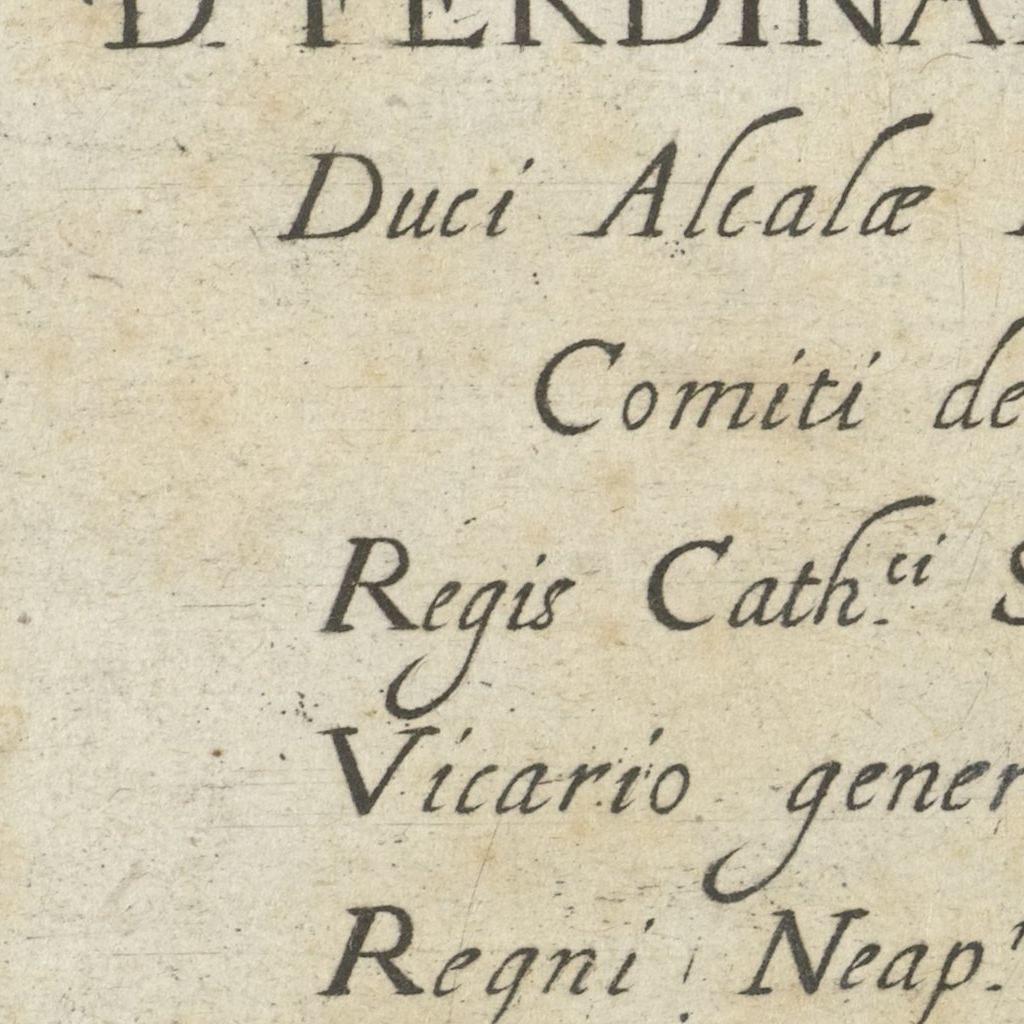 D. FERDINA
Duci Alcalæ
Comiti de
Regis Cath.ci S
Vicario gener
Regni Neap.